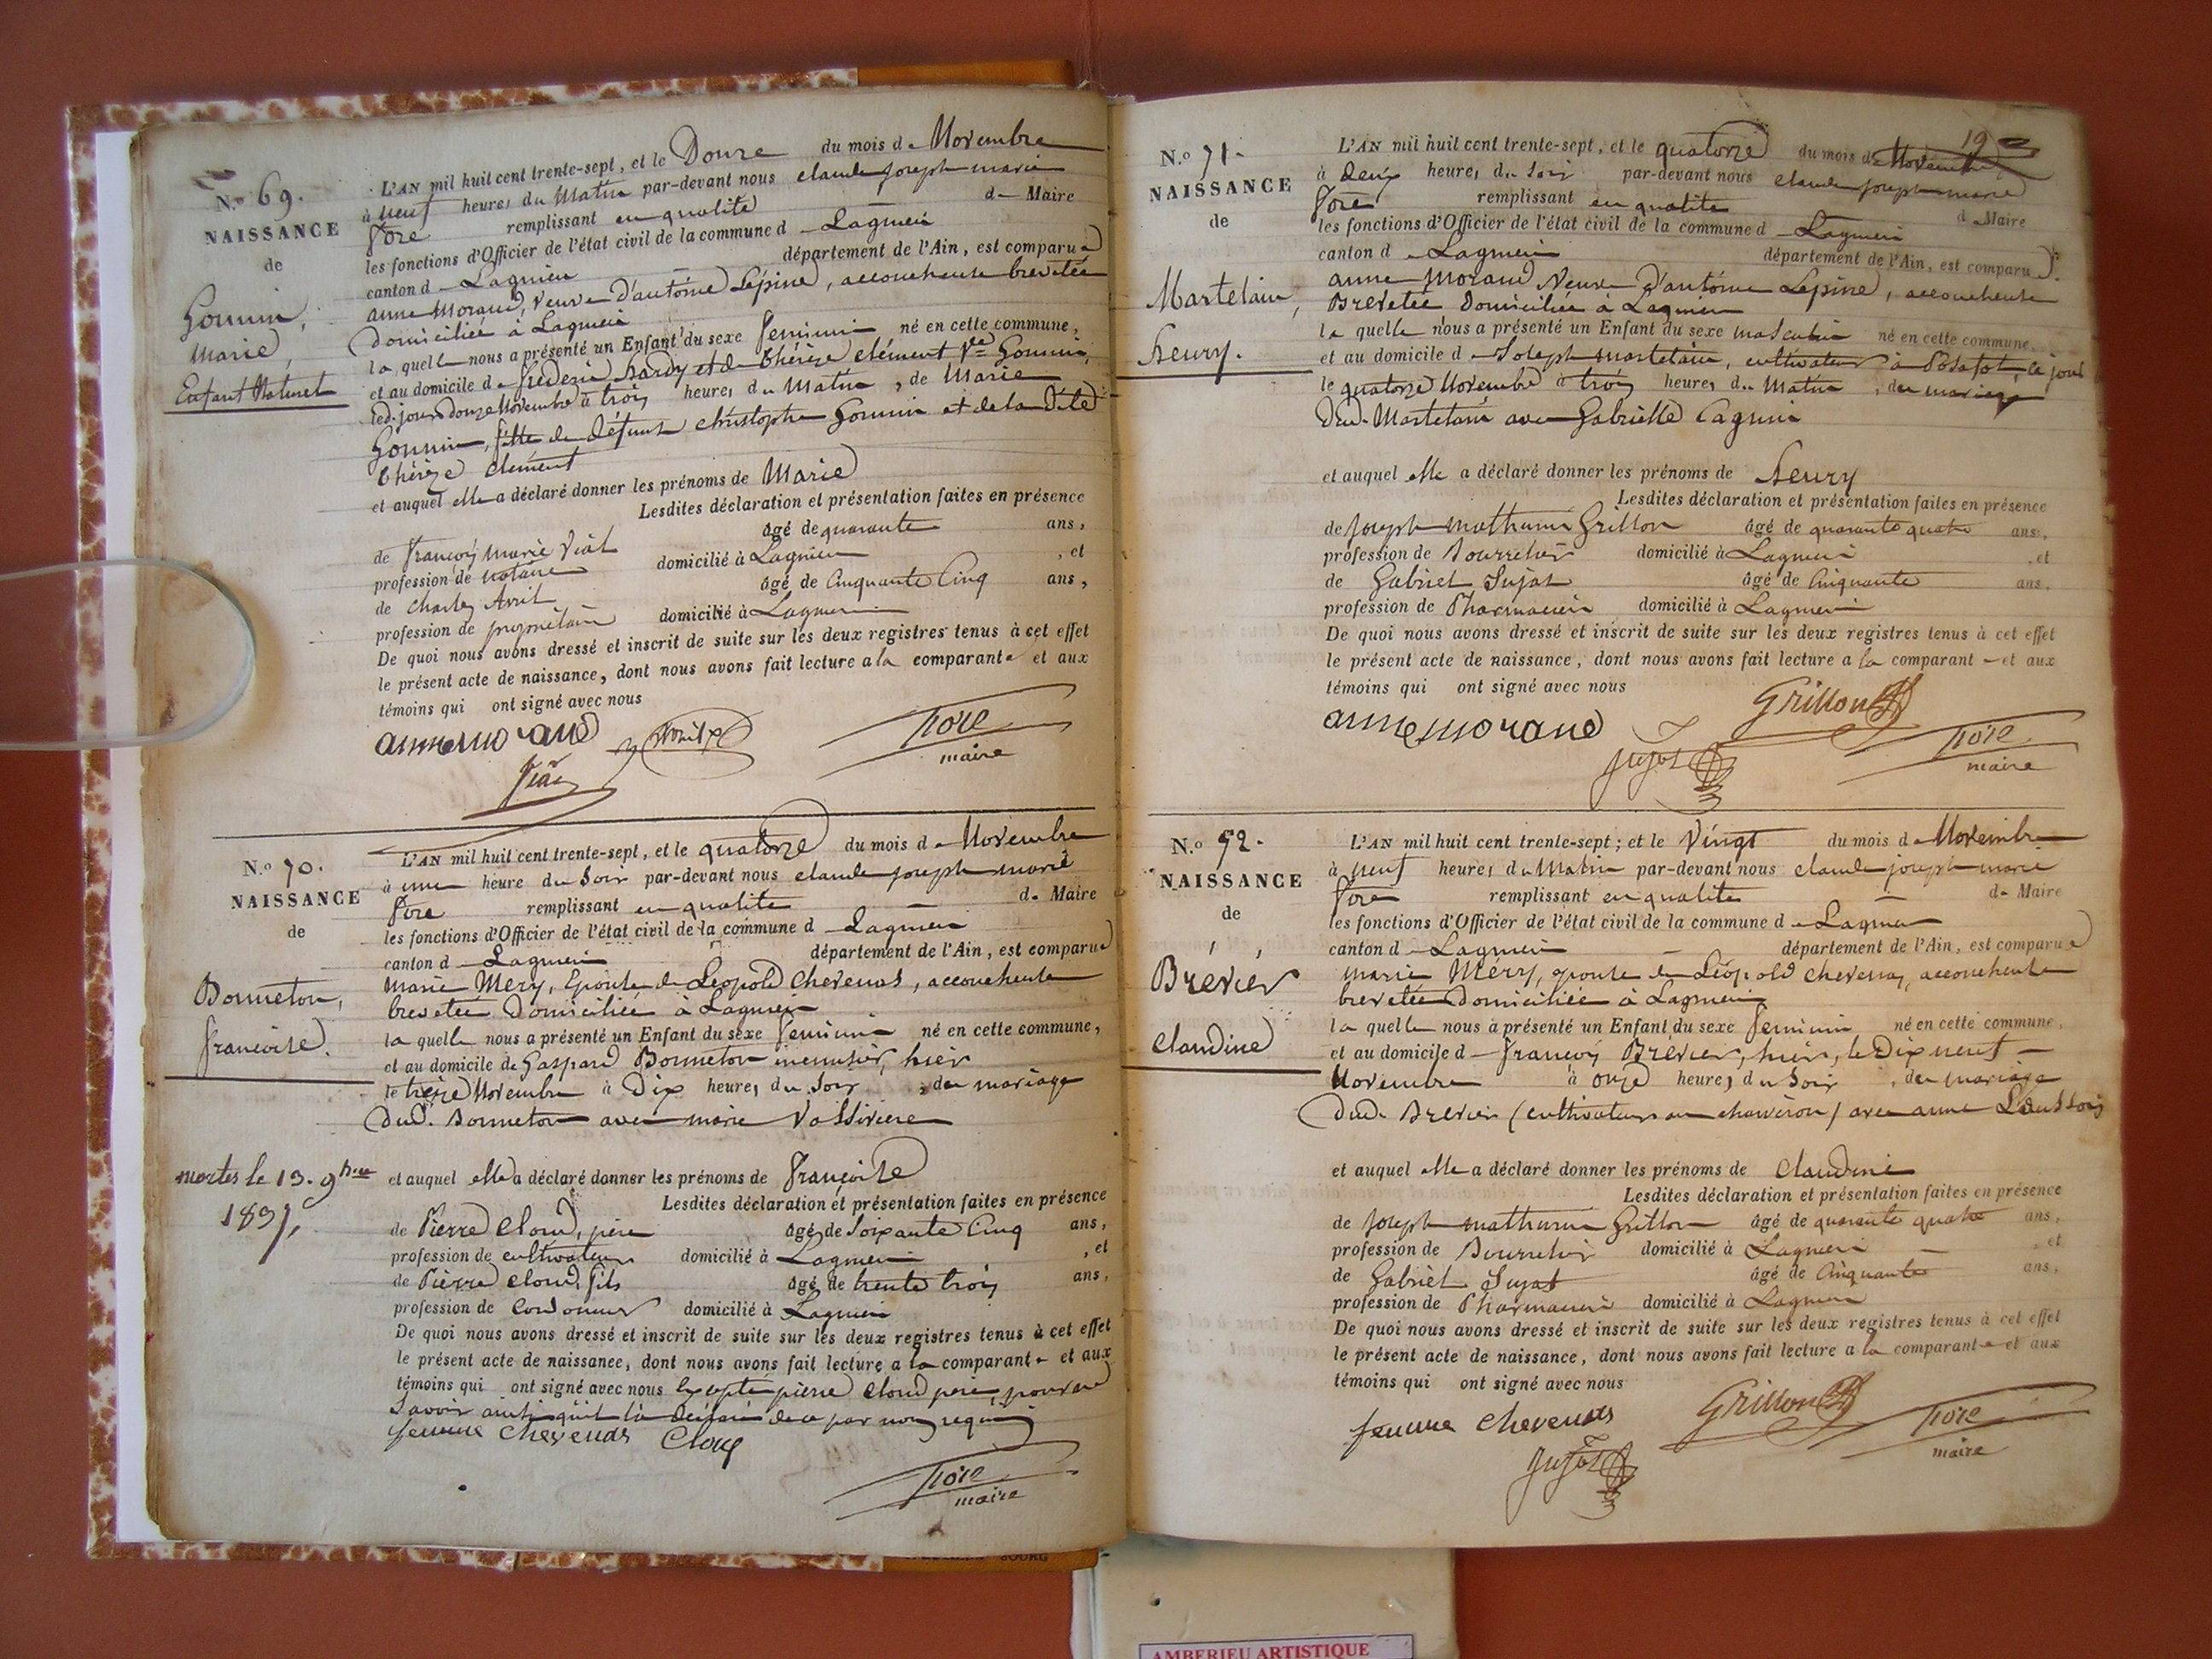 N.o 69.
NAISSANCE
de
Gounin,
Marie,
Enfant Naturel
L'AN mil huit cent trente-sept, et le Douze du mois de Novembre
à neuf heures du Matin par-devant nous claude joseph marie
remplissant en qualité de Maire
les fonctions d'Officier de l'état civil de la commune d Lagnieu
canton d Lagnieu département de l'Ain, est comparue
anne Morand, veuve d'antoine Lépine, accoucheuse brevetée
Domiciliée à Lagnieu
la quelle nous a présenté un Enfant du sexe feminin né en cette commune,
et au domicile de frédéric hardy et de thérèze clément Vve Gounin,
ledi jour douze Novembre à trois heures du Matin, de Marie
Gounin, fille de défunt christophe Gounin et de la dite
thérèze clément
et auquel elle a déclaré donner les prénoms de Marie
Lesdites déclaration et présentation faites en présence
de françois marie Viat âgé de quarante ans,
profession de notaire domicilié à Lagnieu , et
de charles Avril âgé de Cinquante Cinq ans,
profession de propriétaire domicilié à Lagnieu
De quoi nous avons dressé et inscrit de suite sur les deux registres tenus à cet effet
le présent acte de naissance, dont nous avons fait lecture a la comparante et aux
témoins qui ont signé avec nous
anne morand
maire
N.o 70.
NAISSANCE
de
Bonneton,
françoise.
mortes le 13. 9bre
1837,
L'AN mil huit cent trente-sept, et le quatorze du mois de Novembre
à une heure du Soir par-devant nous claude joseph marie
remplissant en qualité de Maire
les fonctions d'Officier de l'état civil de la commune d Lagnieu
canton d Lagnieu département de l'Ain, est comparue
marie Méry, Epouse de Léopold chevenas, accoucheuse
brevetée Domiciliée à Lagnieu
la quelle nous a présenté un Enfant du sexe feminin né en cette commune,
et au domicile de Gaspard Bonneton menuisier, hier
le treize Novembre à Dix heures du Soir, du mariage
dud. Bonneton avec marie Vassiviere
et auquel elle a déclaré donner les prénoms de françoise
Lesdites déclaration et présentation faites en présence
de Pierre Cloud, père âgé de Soixante Cinq ans,
profession de cultivateur domicilié à Lagnieu , et
de Pierre cloud, fils âgé de trente trois ans,
profession de Cordonnier domicilié à Lagnieu
De quoi nous avons dressé et inscrit de suite sur les deux registres tenus à cet effet
le présent acte de naissance, dont nous avons fait lecture a la comparante et aux
témoins qui ont signé avec nous Excepté pierre cloud père, pour ne
Savoir ainsi qu'il l'a déclaré de ce par nous requis
femme chevenas
maire
19
N.o 71.
NAISSANCE
de
Martelain,
henry.
L'AN mil huit cent trente-sept, et le quatorze du mois de Novembre
à deux heures du Soir par-devant nous claude joseph marie
remplissant en qualité de Maire
les fonctions d'Officier de l'état civil de la commune d Lagnieu
canton d Lagnieu département de l'Ain, est comparue
anne Morand Veuve d'antoine Lépine, accoucheuse
Brevetée Domiciliée à Lagnieu
la quelle nous a présenté un Enfant du sexe masculin né en cette commune,
et au domicile de Joseph martelain, cultivateur à Posafol, ce jour
le quatorze Novembre à trois heures du Matin, du mariage
dud. Martelain avec Gabrielle Cagnin
et auquel elle a déclaré donner les prénoms de henry
Lesdites déclaration et présentation faites en présence
de joseph mathurin Grillon âgé de quarante quatre ans,
profession de Bourrelier domicilié à Lagnieu , et
de Gabriel Jujat âgé de Cinquante ans,
profession de Pharmacien domicilié à Lagnieu
De quoi nous avons dressé et inscrit de suite sur les deux registres tenus à cet effet
le présent acte de naissance, dont nous avons fait lecture a la comparant et aux
témoins qui ont signé avec nous
Grillon
anne morand
Jujat
maire
N.o 72.
NAISSANCE
de
Brevier
Claudine
L'AN mil huit cent trente-sept; et le Vingt du mois de Novembre
à neuf heures du Matin par-devant nous claude joseph marie
remplissant en qualité de Maire
les fonctions d'Officier de l'état civil de la commune d Lagnieu
canton d Lagnieu département de l'Ain, est comparue
marie Méry, épouse de Léopold chevenas, accoucheuse
brevetée Domiciliée à Lagnieu
la quelle nous a présenté un Enfant du sexe feminin né en cette commune,
et au domicile d françois Brévier, hier, le Dix neuf
Novembre à onze heures du Soir, du mariage
dud. Brevier (cultivateur au charveron) avec anne
et auquel elle a déclaré donner les prénoms de Claudine
Lesdites déclaration et présentation faites en présence
de joseph mathurin Grillon âgé de quarante quatre ans,
profession de Bourrelier domicilié à Lagnieu , et
de Gabriel Jujat âgé de Cinquante ans,
profession de Pharmacien domicilié à Lagnieu
De quoi nous avons dressé et inscrit de suite sur les deux registres tenus à cet effet
le présent acte de naissance, dont nous avons fait lecture a la comparante et aux
témoins qui ont signé avec nous
femme chevenas
Grillon
Jujat
maire
AMBERIEU ARTISTIQUE